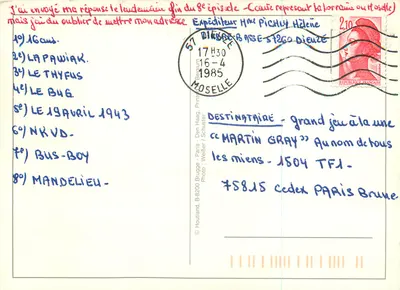 J'ai envoyé ma réponse le lendemain fin du 8e épisode - (carte représent la lorraine ou Moselle)
mais j'ai du oublier de mettre mon adresse Expéditeur Mme PICHLY Hélène
BASSE 57260 DIEUZE
1°) 16 ans.
2°) LA PAWIAK.
3°) LE THYFUS
4°) LE BUG
5°) LE 19 AVRIL 1943
6°) NKVD-
7°) BUS-BOY
8°) MANDELIEU-
57 DIEUZE
17H30
16-4
1985
MOSELLE
2,10
DESTINATAIRE - Grand jeu à la une
"MARTIN GRAY" Au nom de tous
les miens - 1504 TF1 -
75815 Cedex PARIS Brune.